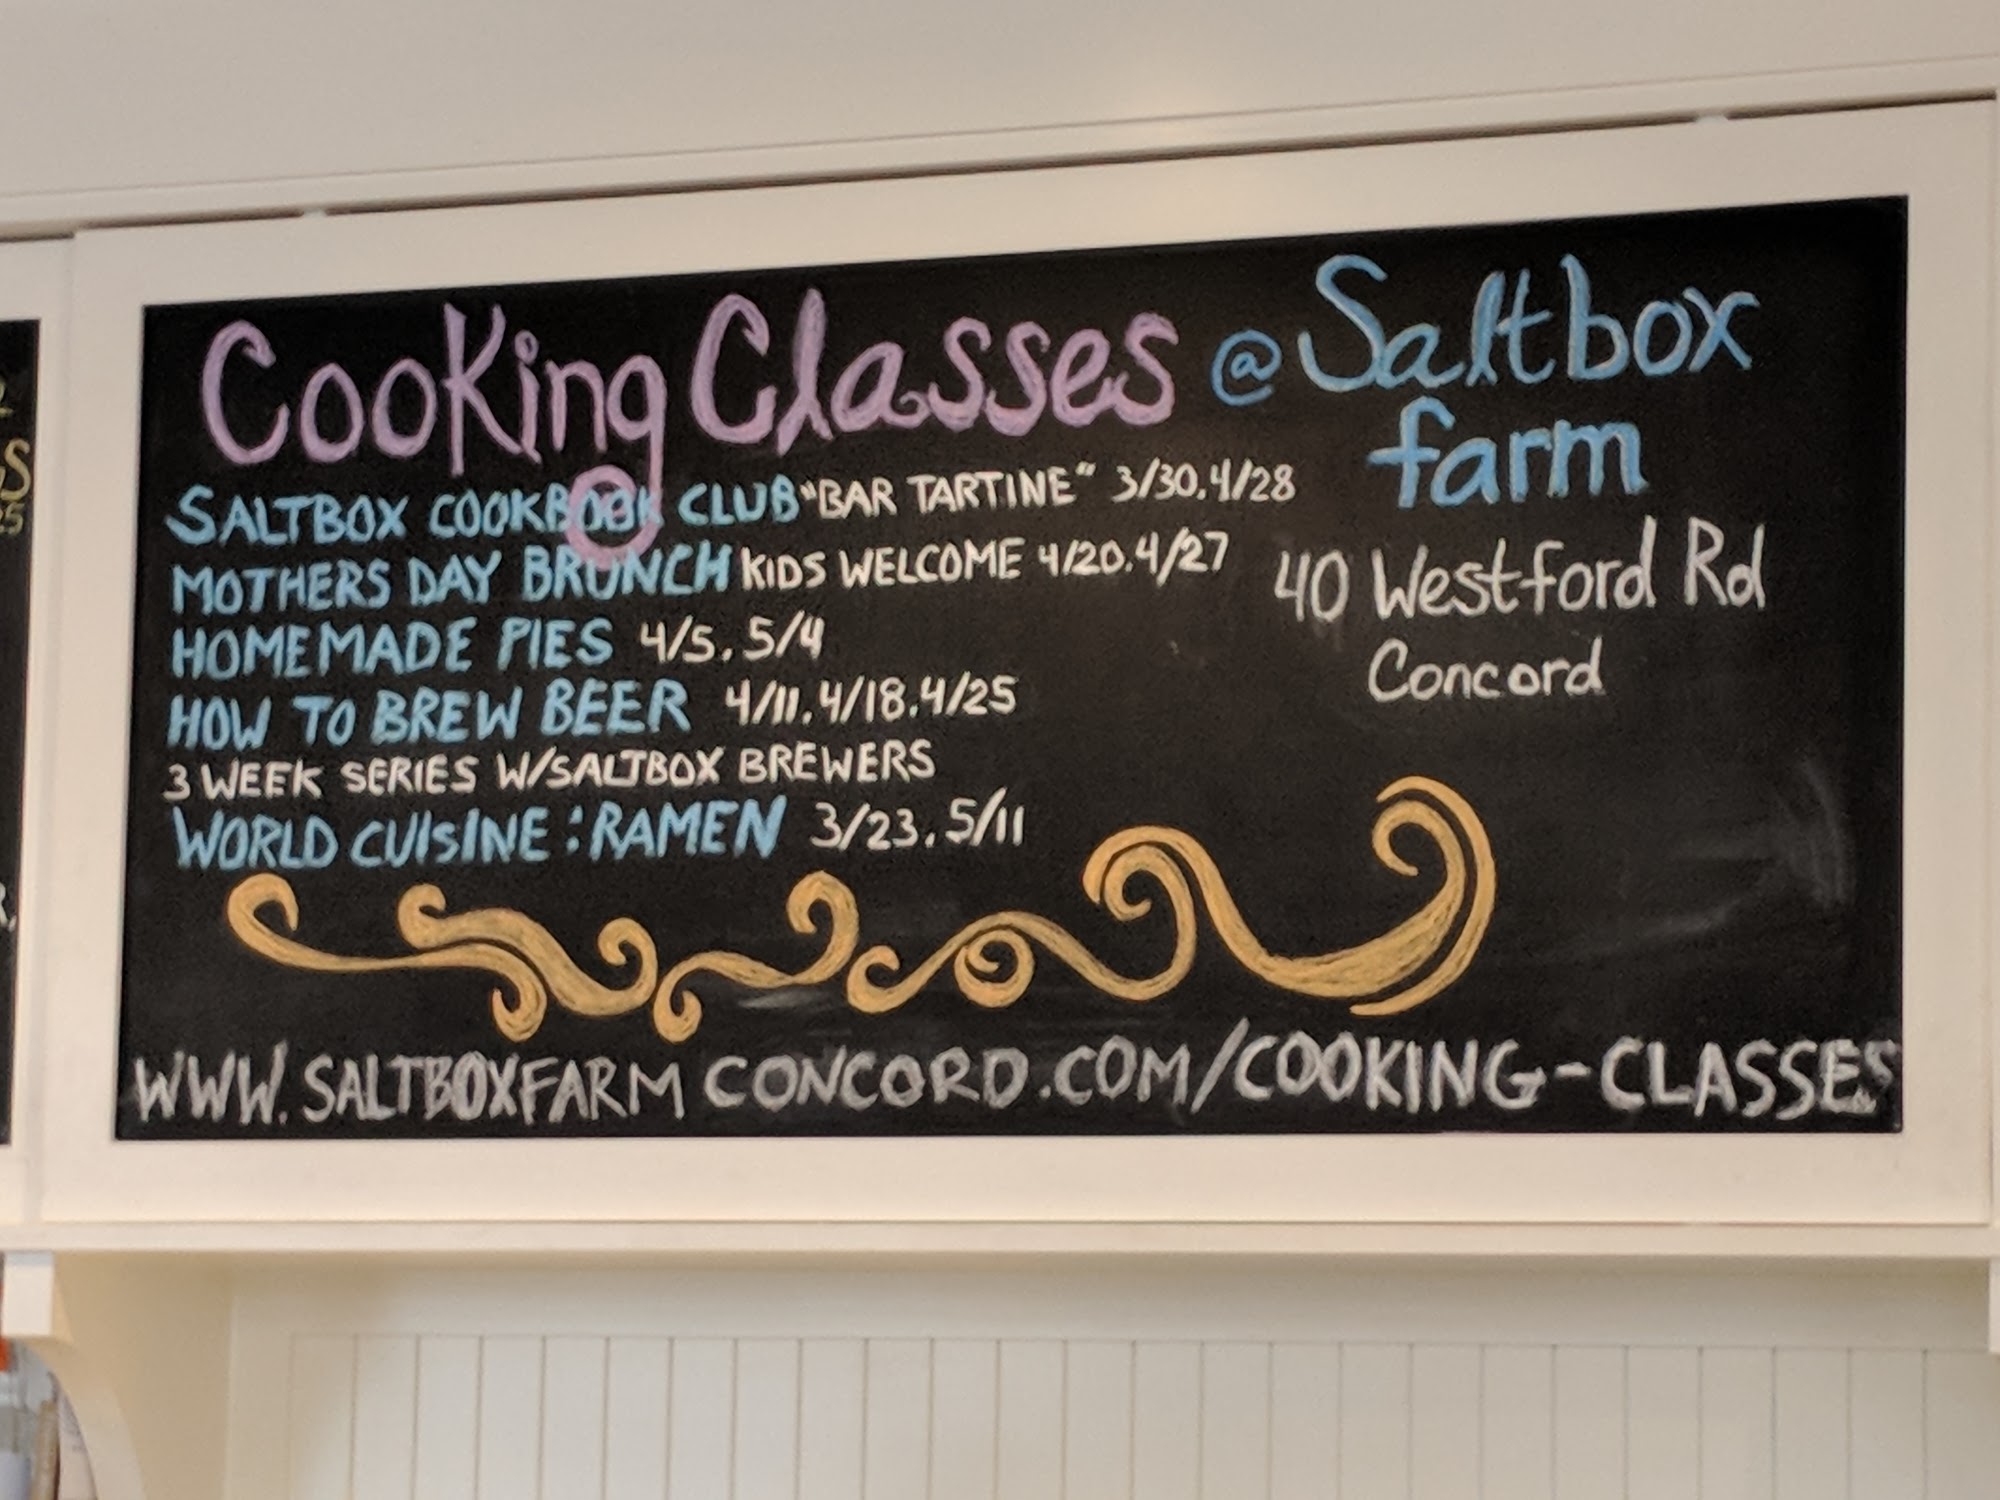 Cooking Classes @ Saltbox
farm
SALTBOX COOKBOOK CLUB "BAR TARTINE" 3/30.4/28
MOTHERS DAY BRUNCH KIDS WELCOME 4/20.4/27
HOMEMADE PIES 4/5.5/4
HOW TO BREW BEER 4/11.4/18.4/25
3 WEEK SERIES W/SALTBOX BREWERS
WORLD CUISINE: RAMEN 3/23.5/11
40 Westford Rd
Concord
WWW.SALTBOXFARM CONCORD.COM/COOKING-CLASSES